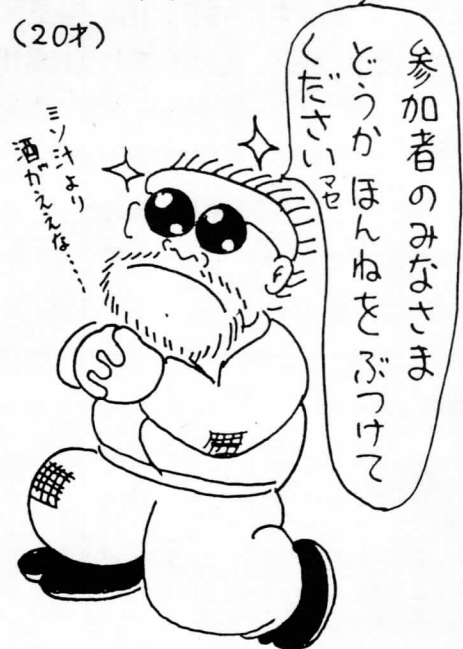 (20才)
参加者のみなさま
どうかほんねをぶつけて
くださいマセ
ミソ汁より
酒がええな……